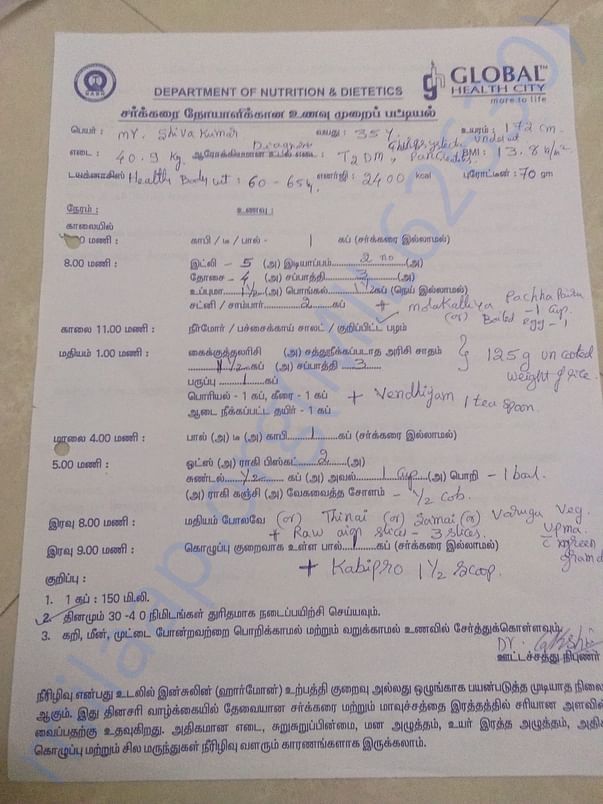 DEPARTMENT OF NUTRITION & DIETETICS
GLOBAL™
HEALTH CITY
more to life
சர்க்கரை நோயாளிக்கான உணவு முறைப் பட்டியல்
பெயர் : Mr. Shiva Kumar வயது : 35 Y உயரம் : 172 cm.
எடை : 40.9 Kg. ஆரோக்கியமான உடல் எடை : T2DM, Pancreatitis BMI : 13.8 kg/m²
டயக்னாசிஸ் Healthy Body wt : 60 - 65 எனர்ஜி : 2400 kcal புரோட்டின் : 70 gm
நேரம் : உணவு :
காலையில்
00 மணி : காபி / டீ / பால் - 1 கப் (சர்க்கரை இல்லாமல்)
8.00 மணி : இட்லி - 5 (அ) இடியாப்பம் 2 no (அ)
தோசை - 4 (அ) சப்பாத்தி 3 (அ)
உப்புமா 1½ (அ) பொங்கல் 1½ கப் (நெய் இல்லாமல்)
சட்னி / சாம்பார் 2 கப் + Molakattiya Pachha Pairu - 1 cup.
(or) Boiled egg - 1
காலை 11.00 மணி : நீர்மோர் / பச்சைக்காய் சாலட் / குறிப்பிட்ட பழம்
மதியம் 1.00 மணி : கைக்குத்தலரிசி (அ) சத்துநீக்கப்படாத அரிசி சாதம்
1½ கப் (அ) சப்பாத்தி 3 } 125 g uncooked weight of rice.
பருப்பு 1 கப்
பொரியல் - 1 கப், கீரை - 1 கப் + Vendhiyam 1 tea spoon.
ஆடை நீக்கப்பட்ட தயிர் - 1 கப்
மாலை 4.00 மணி : பால் (அ) டீ (அ) காபி 1 கப் (சர்க்கரை இல்லாமல்)
5.00 மணி : ஓட்ஸ் (அ) ராகி பிஸ்கட் 2 (அ)
சுண்டல் ½ கப் (அ) அவல் 1 cup (அ) பொறி - 1 bowl.
(அ) ராகி கஞ்சி (அ) வேகவைத்த சோளம் - ½ cob.
இரவு 8.00 மணி : மதியம் போலவே (or) Thinai (or) Samai (or) Varugu Veg. Upma.
+ Raw slice - 3 slices. c green gramd
இரவு 9.00 மணி : கொழுப்பு குறைவாக உள்ள பால் 1 கப் (சர்க்கரை இல்லாமல்)
+ Kabipro 1½ scoop.
குறிப்பு :
1. 1 கப் : 150 மி.லி.
2. தினமும் 30 -40 நிமிடங்கள் துரிதமாக நடைப்பயிற்சி செய்யவும்.
3. கறி, மீன், முட்டை போன்றவற்றை பொறிக்காமல் மற்றும் வறுக்காமல் உணவில் சேர்த்துக்கொள்ளவும்
Dt.
ஊட்டச்சத்து நிபுணர்
நீரிழிவு என்பது உடலில் இன்சுலின் (ஹார்மோன்) உற்பத்தி குறைவு அல்லது ஒழுங்காக பயன்படுத்த முடியாத நிலை
ஆகும். இது தினசரி வாழ்க்கையில் தேவையான சர்க்கரை மற்றும் மாவுச்சத்தை இரத்தத்தில் சரியான அளவில்
வைப்பதற்கு உதவுகிறது. அதிகமான எடை, சுறுசுறுப்பின்மை, மன அழுத்தம், உயர் இரத்த அழுத்தம், அதிக
கொழுப்பு மற்றும் சில மருந்துகள் நீரிழிவு வளரும் காரணங்களாக இருக்கலாம்.